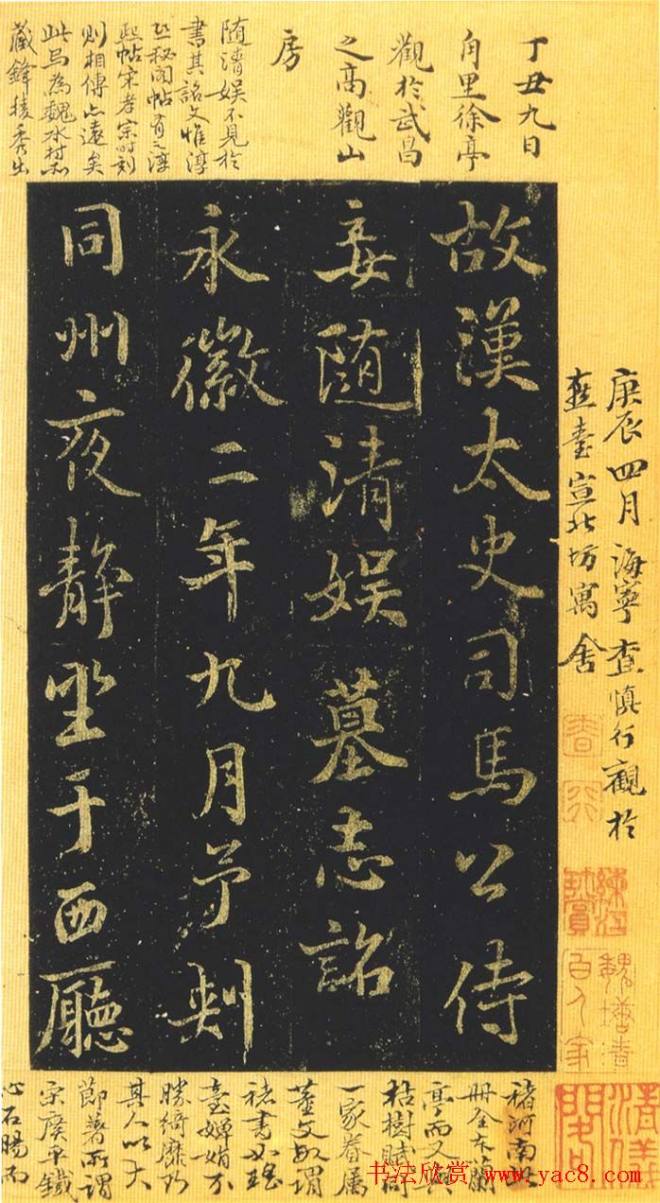 丁丑九日
角里徐亭
觀於武昌
之高觀山
房
隨清娱不見於
書其銘文惟淳
熙秘閣帖有之淳
熙帖宋孝宗時刻
則相傳亦遠矣
此烏為魏水村
藏鋒棱秀出
庚辰四月海寧查慎行觀於
燕臺宣北坊寓舍
故漢太史司馬公侍
妾隨清娱墓志銘
永徽二年九月予刺
同州夜靜坐于西廳
褚河南
冊全
亭而又
枯樹賦
一家眷属
董文敏謂
褚書如瑤
臺嬋娟不
勝綺靡乃
其人以大
節著所謂
宋廣平鐵
心石腸而
书法欣赏 www.yac8.com